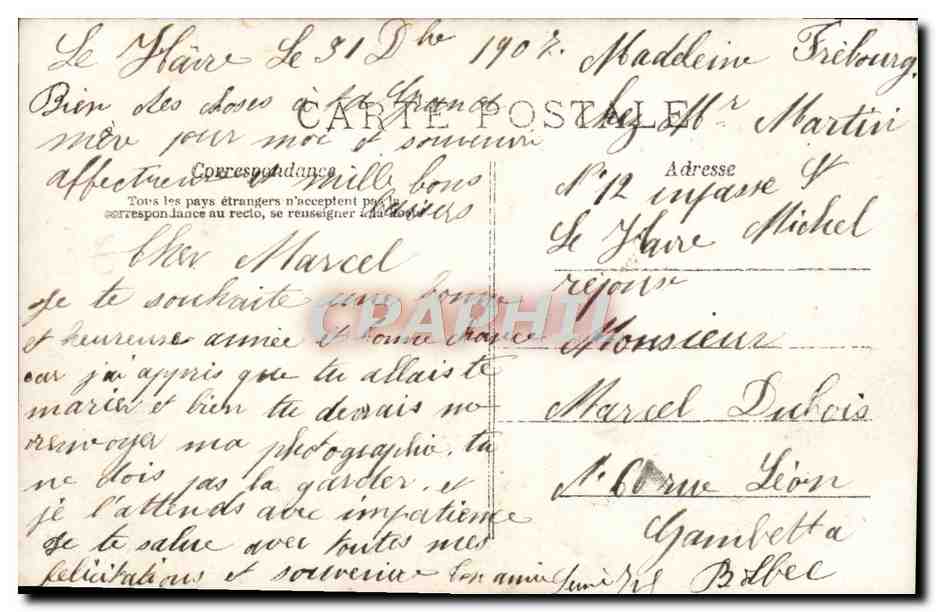 Le Hâvre Le 31 Dbre 1907.
Bien des choses à ta Grand
mère pour moi et souvenir
affectueux et mille bons
baisers
CARTE POSTALE
Correspondance
Tous les pays étrangers n'acceptent pas la
correspondance au recto, se renseigner à la Poste
Cher Marcel
Je te souhaite une bonne
et heureuse année et bonne chance
car j'ai appris que tu allais te
marier et bien tu devrais me
renvoyer ma photographie. tu
ne dois pas la garder. et
je l'attends avec impatience
Je te salue avec toutes mes
félicitations et souvenir ton amie
Madeleine Frébourg.
chez Mr Martin
Adresse
N° 12 impasse St
Michel
Le Havre
réponse
Monsieur
Marcel Dubois
N° 60 rue Léon
Gambetta
Bolbec
CPARHII